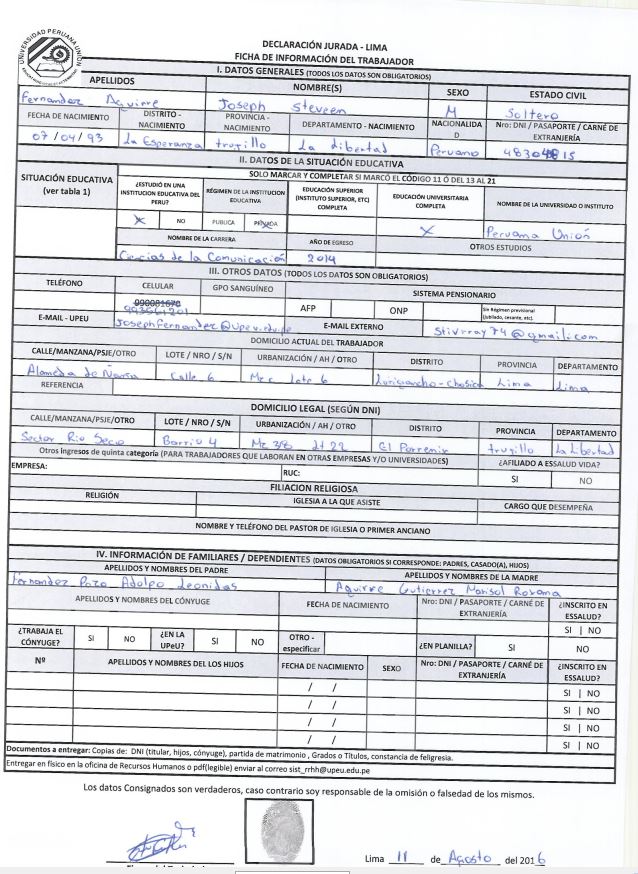 UNIVERSIDAD PERUANA UNION
DECLARACIÓN JURADA - LIMA
FICHA DE INFORMACIÓN DEL TRABAJADOR
I. DATOS GENERALES (TODOS LOS DATOS SON OBLIGATORIOS)
APELLIDOS NOMBRE(S) SEXO ESTADO CIVIL
Fernandez Aguirre Joseph Steveen M Soltero
FECHA DE NACIMIENTO DISTRITO - NACIMIENTO PROVINCIA - NACIMIENTO DEPARTAMENTO - NACIMIENTO NACIONALIDAD Nro: DNI / PASAPORTE / CARNÉ DE EXTRANJERÍA
07/04/93 La Esperanza trujillo La libertad Peruano
II. DATOS DE LA SITUACIÓN EDUCATIVA
SITUACIÓN EDUCATIVA (ver tabla 1) SOLO MARCAR Y COMPLETAR SI MARCÓ EL CÓDIGO 11 Ó DEL 13 AL 21
¿ESTUDIÓ EN UNA INSTITUCION EDUCATIVA DEL PERU? RÉGIMEN DE LA INSTITUCION EDUCATIVA EDUCACIÓN SUPERIOR (INSTITUTO SUPERIOR, ETC) COMPLETA EDUCACIÓN UNIVERSITARIA COMPLETA NOMBRE DE LA UNIVERSIDAD O INSTITUTO
X NO PUBLICA PRIVADA X Peruana Unión
NOMBRE DE LA CARRERA AÑO DE EGRESO OTROS ESTUDIOS
Ciencias de la Comunicación 2014
III. OTROS DATOS (TODOS LOS DATOS SON OBLIGATORIOS)
TELÉFONO CELULAR GPO SANGUÍNEO SISTEMA PENSIONARIO
993561201 AFP ONP Sin Régimen previsional (jubilado, cesante, etc).
E-MAIL - UPEU Josephfernandez@upeu.edu.pe E-MAIL EXTERNO Stivrray74@gmail.com
DOMICILIO ACTUAL DEL TRABAJADOR
CALLE/MANZANA/PSJE/OTRO LOTE / NRO / S/N URBANIZACIÓN / AH / OTRO DISTRITO PROVINCIA DEPARTAMENTO
Alameda de Ñaña Calle 6 Mz c Lote 6 Lurigancho-Chosica Lima Lima
REFERENCIA
DOMICILIO LEGAL (SEGÚN DNI)
CALLE/MANZANA/PSJE/OTRO LOTE / NRO / S/N URBANIZACIÓN / AH / OTRO DISTRITO PROVINCIA DEPARTAMENTO
Sector Rio Seco Barrio 4 Mz 38 lt 22 El Porvenir trujillo La Libertad
Otros ingresos de quinta categoría (PARA TRABAJADORES QUE LABORAN EN OTRAS EMPRESAS Y/O UNIVERSIDADES) ¿AFILIADO A ESSALUD VIDA?
EMPRESA: RUC: SI NO
FILIACION RELIGIOSA
RELIGIÓN IGLESIA A LA QUE ASISTE CARGO QUE DESEMPEÑA
NOMBRE Y TELÉFONO DEL PASTOR DE IGLESIA O PRIMER ANCIANO
IV. INFORMACIÓN DE FAMILIARES / DEPENDIENTES (DATOS OBLIGATORIOS SI CORRESPONDE: PADRES, CASADO(A), HIJOS)
APELLIDOS Y NOMBRES DEL PADRE APELLIDOS Y NOMBRES DE LA MADRE
Fernandez Pozo Adolfo Leonidas Aguirre Gutierrez Marisol Roxana
APELLIDOS Y NOMBRES DEL CÓNYUGE FECHA DE NACIMIENTO Nro: DNI / PASAPORTE / CARNÉ DE EXTRANJERÍA ¿INSCRITO EN ESSALUD?
SI | NO
¿TRABAJA EL CÓNYUGE? SI NO ¿EN LA UPeU? SI NO OTRO - especificar ¿EN PLANILLA? SI NO
Nº APELLIDOS Y NOMBRES DEL LOS HIJOS FECHA DE NACIMIENTO SEXO Nro: DNI / PASAPORTE / CARNÉ DE EXTRANJERÍA ¿INSCRITO EN ESSALUD?
/ / SI | NO
/ / SI | NO
/ / SI | NO
/ / SI | NO
Documentos a entregar: Copias de: DNI (titular, hijos, cónyuge), partida de matrimonio , Grados o Títulos, constancia de feligresia.
Entregar en físico en la oficina de Recursos Humanos o pdf(legible) enviar al correo sist_rrhh@upeu.edu.pe
Los datos Consignados son verdaderos, caso contrario soy responsable de la omisión o falsedad de los mismos.
Lima 11 de Agosto del 2016